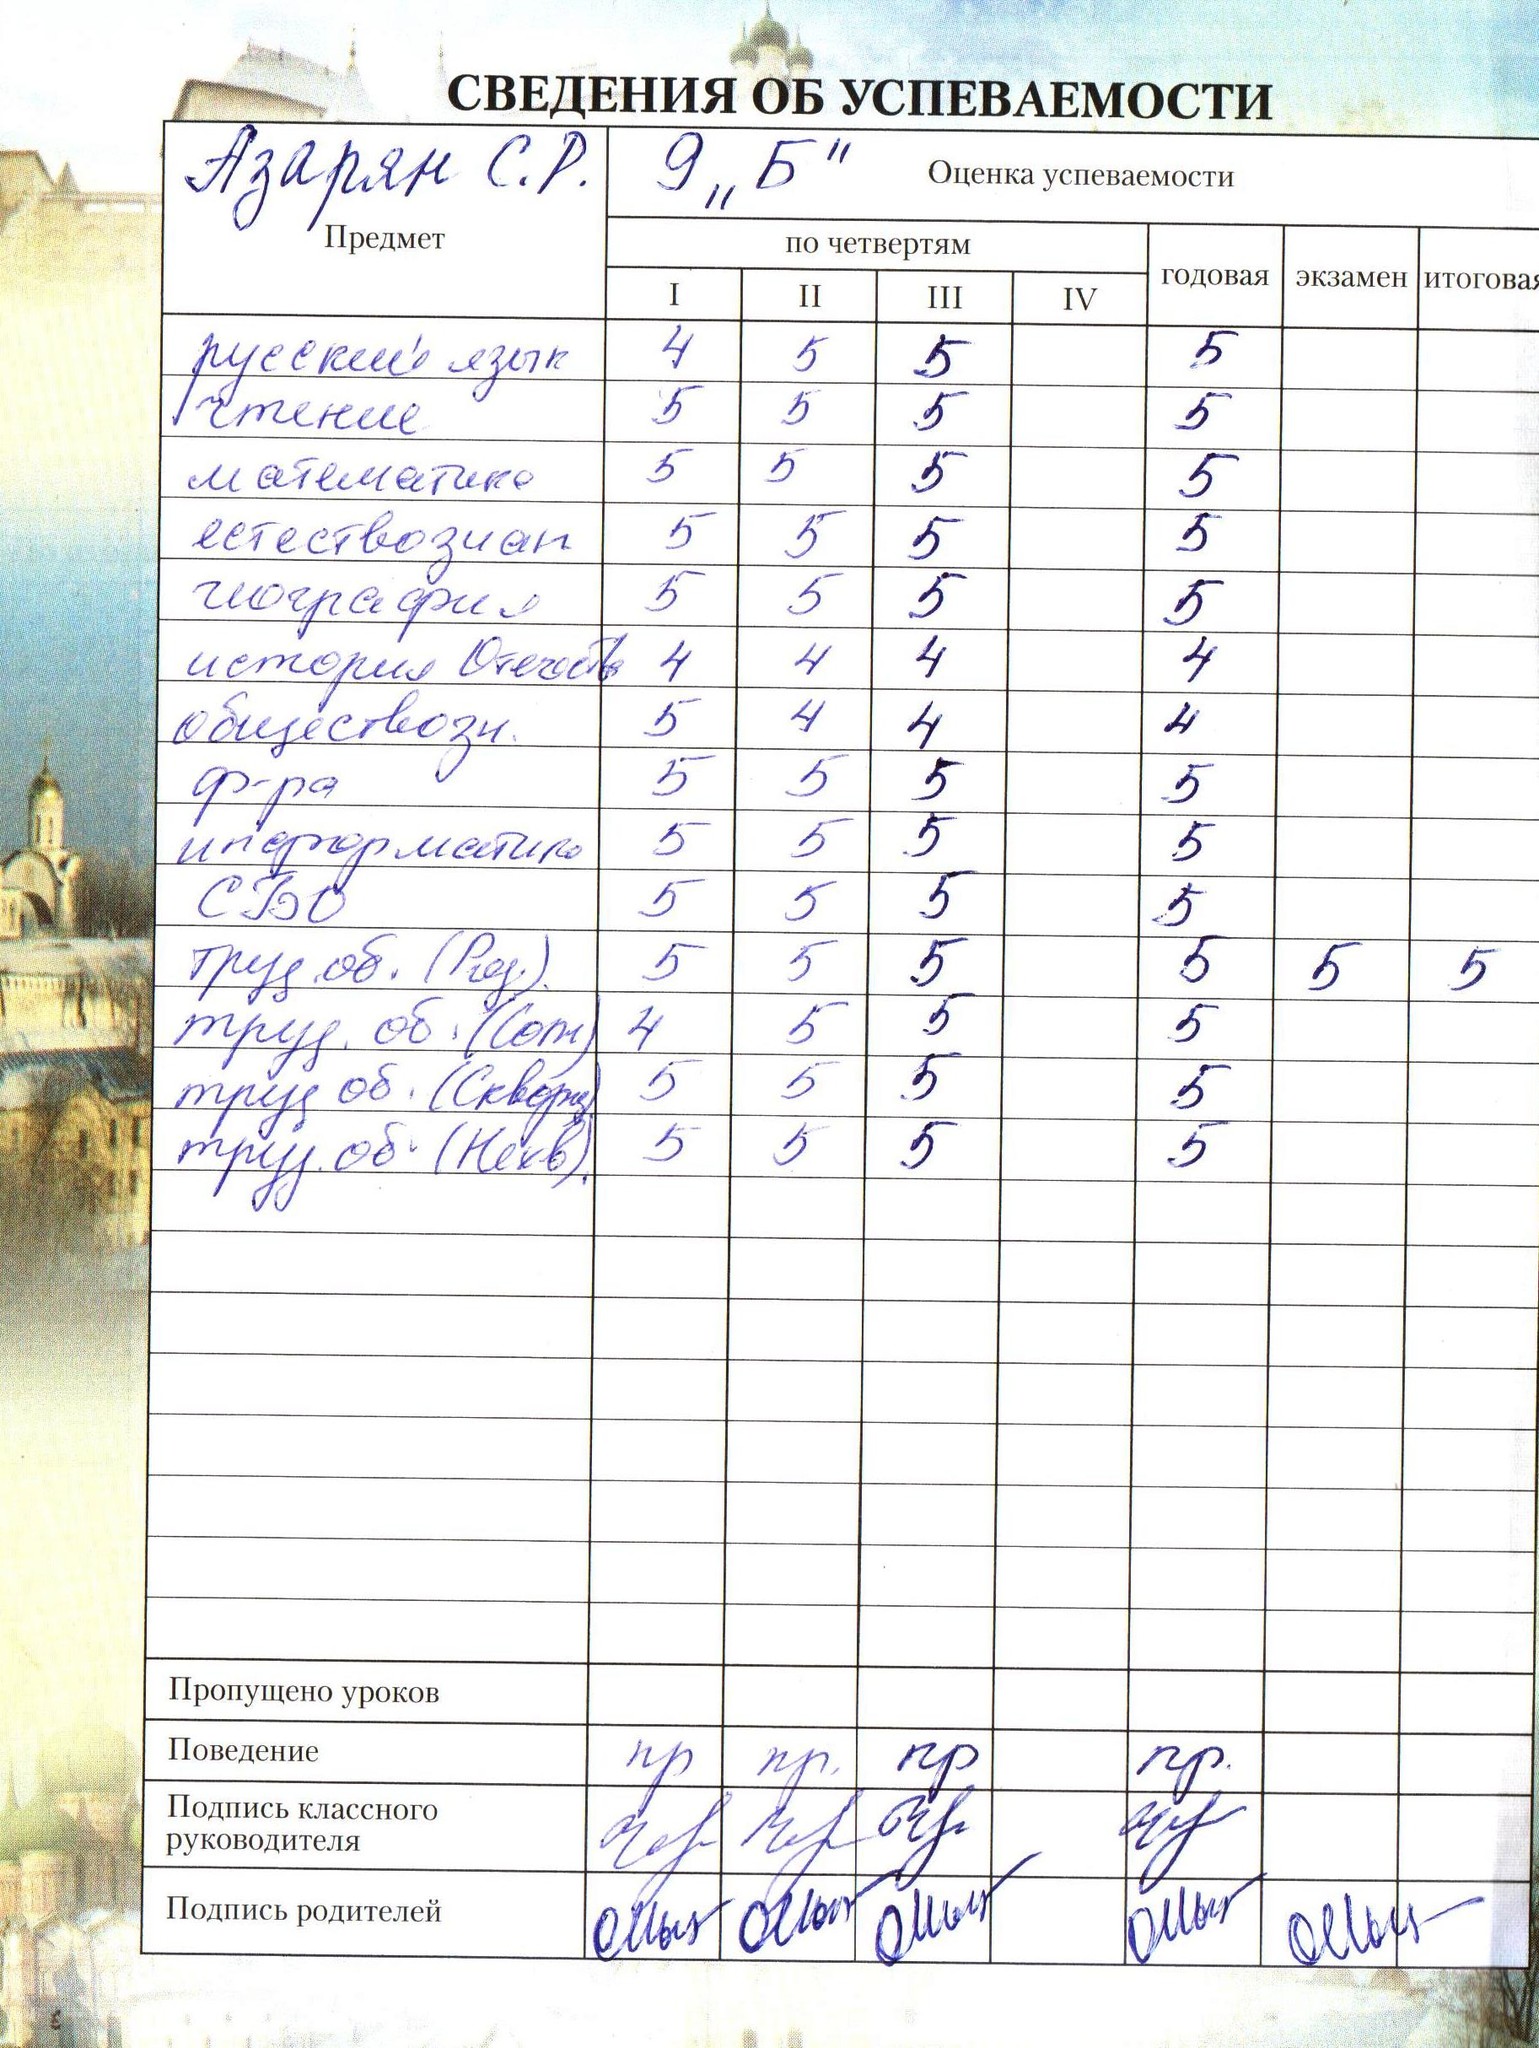 СВЕДЕНИЯ ОБ УСПЕВАЕМОСТИ
Азарян С.Р. 9 „Б" Оценка успеваемости
Предмет по четвертям годовая экзамен итоговая
I II III IV
русский язык 4 5 5 5
чтение 5 5 5 5
математика 5 5 5 5
естествознан 5 5 5 5
география 5 5 5 5
история Отечеств 4 4 4 4
обществозн. 5 4 4 4
ф-ра 5 5 5 5
информатика 5 5 5 5
СБО 5 5 5 5
труд. об. 5 5 5 5 5 5
труд. об. 4 5 5 5
труд об. 5 5 5 5
труд. об. 5 5 5 5
Пропущено уроков
Поведение пр пр. пр пр.
Подпись классного
руководителя
Подпись родителей